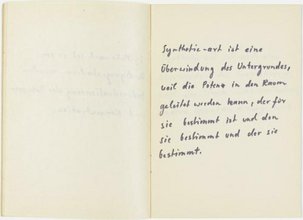 Synthetic-art ist eine
Überwindung des Untergrundes,
weil die Potenz in den Raum
geleitet werden kann, der für
sie bestimmt ist und den
sie bestimmt und der sie
bestimmt.